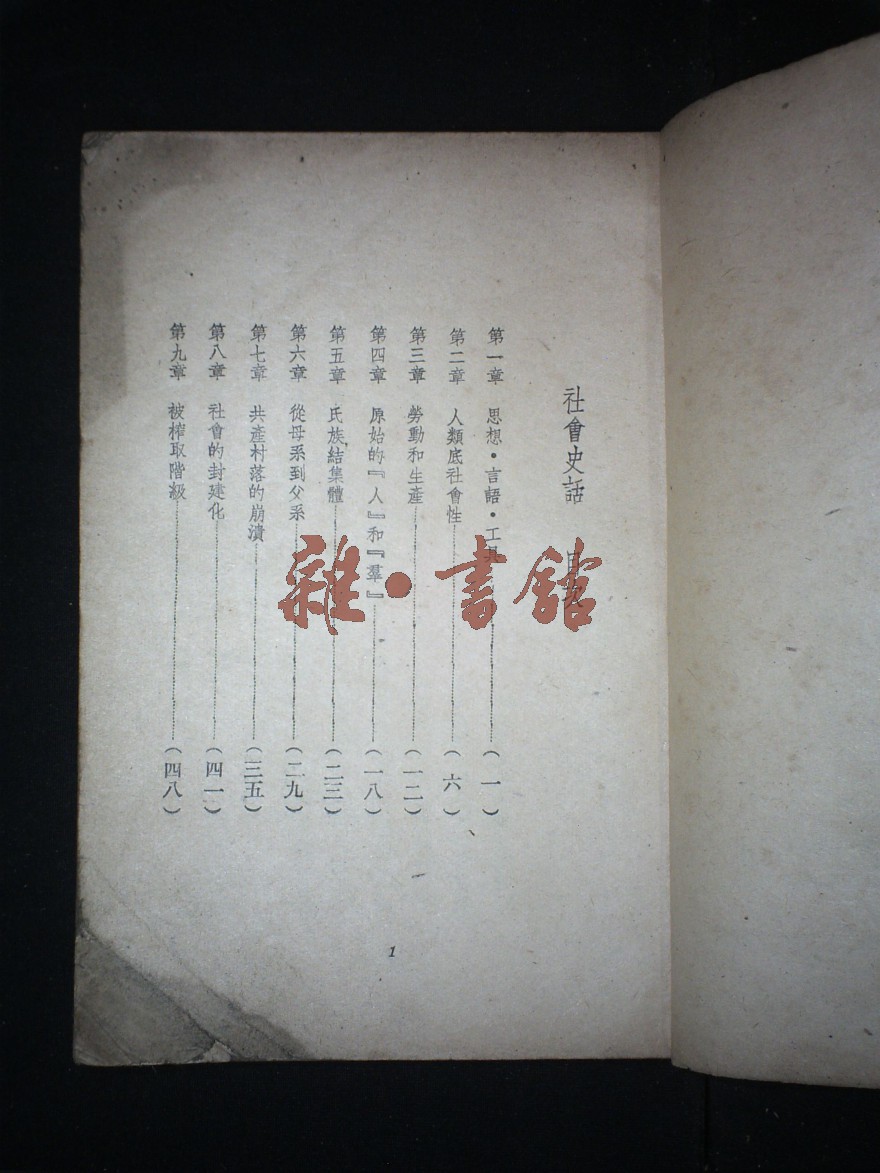 社會史話 目次
第一章 思想·言語·工具……(一)
第二章 人類底社會性……(六)
第三章 勞動和生產……(一二)
第四章 原始的『人』和『羣』……(一八)
第五章 氏族結集體……(二三)
第六章 從母系到父系……(二九)
第七章 共產村落的崩潰……(三五)
第八章 社會的封建化……(四一)
第九章 被榨取階級……(四八)
1
雜·書館